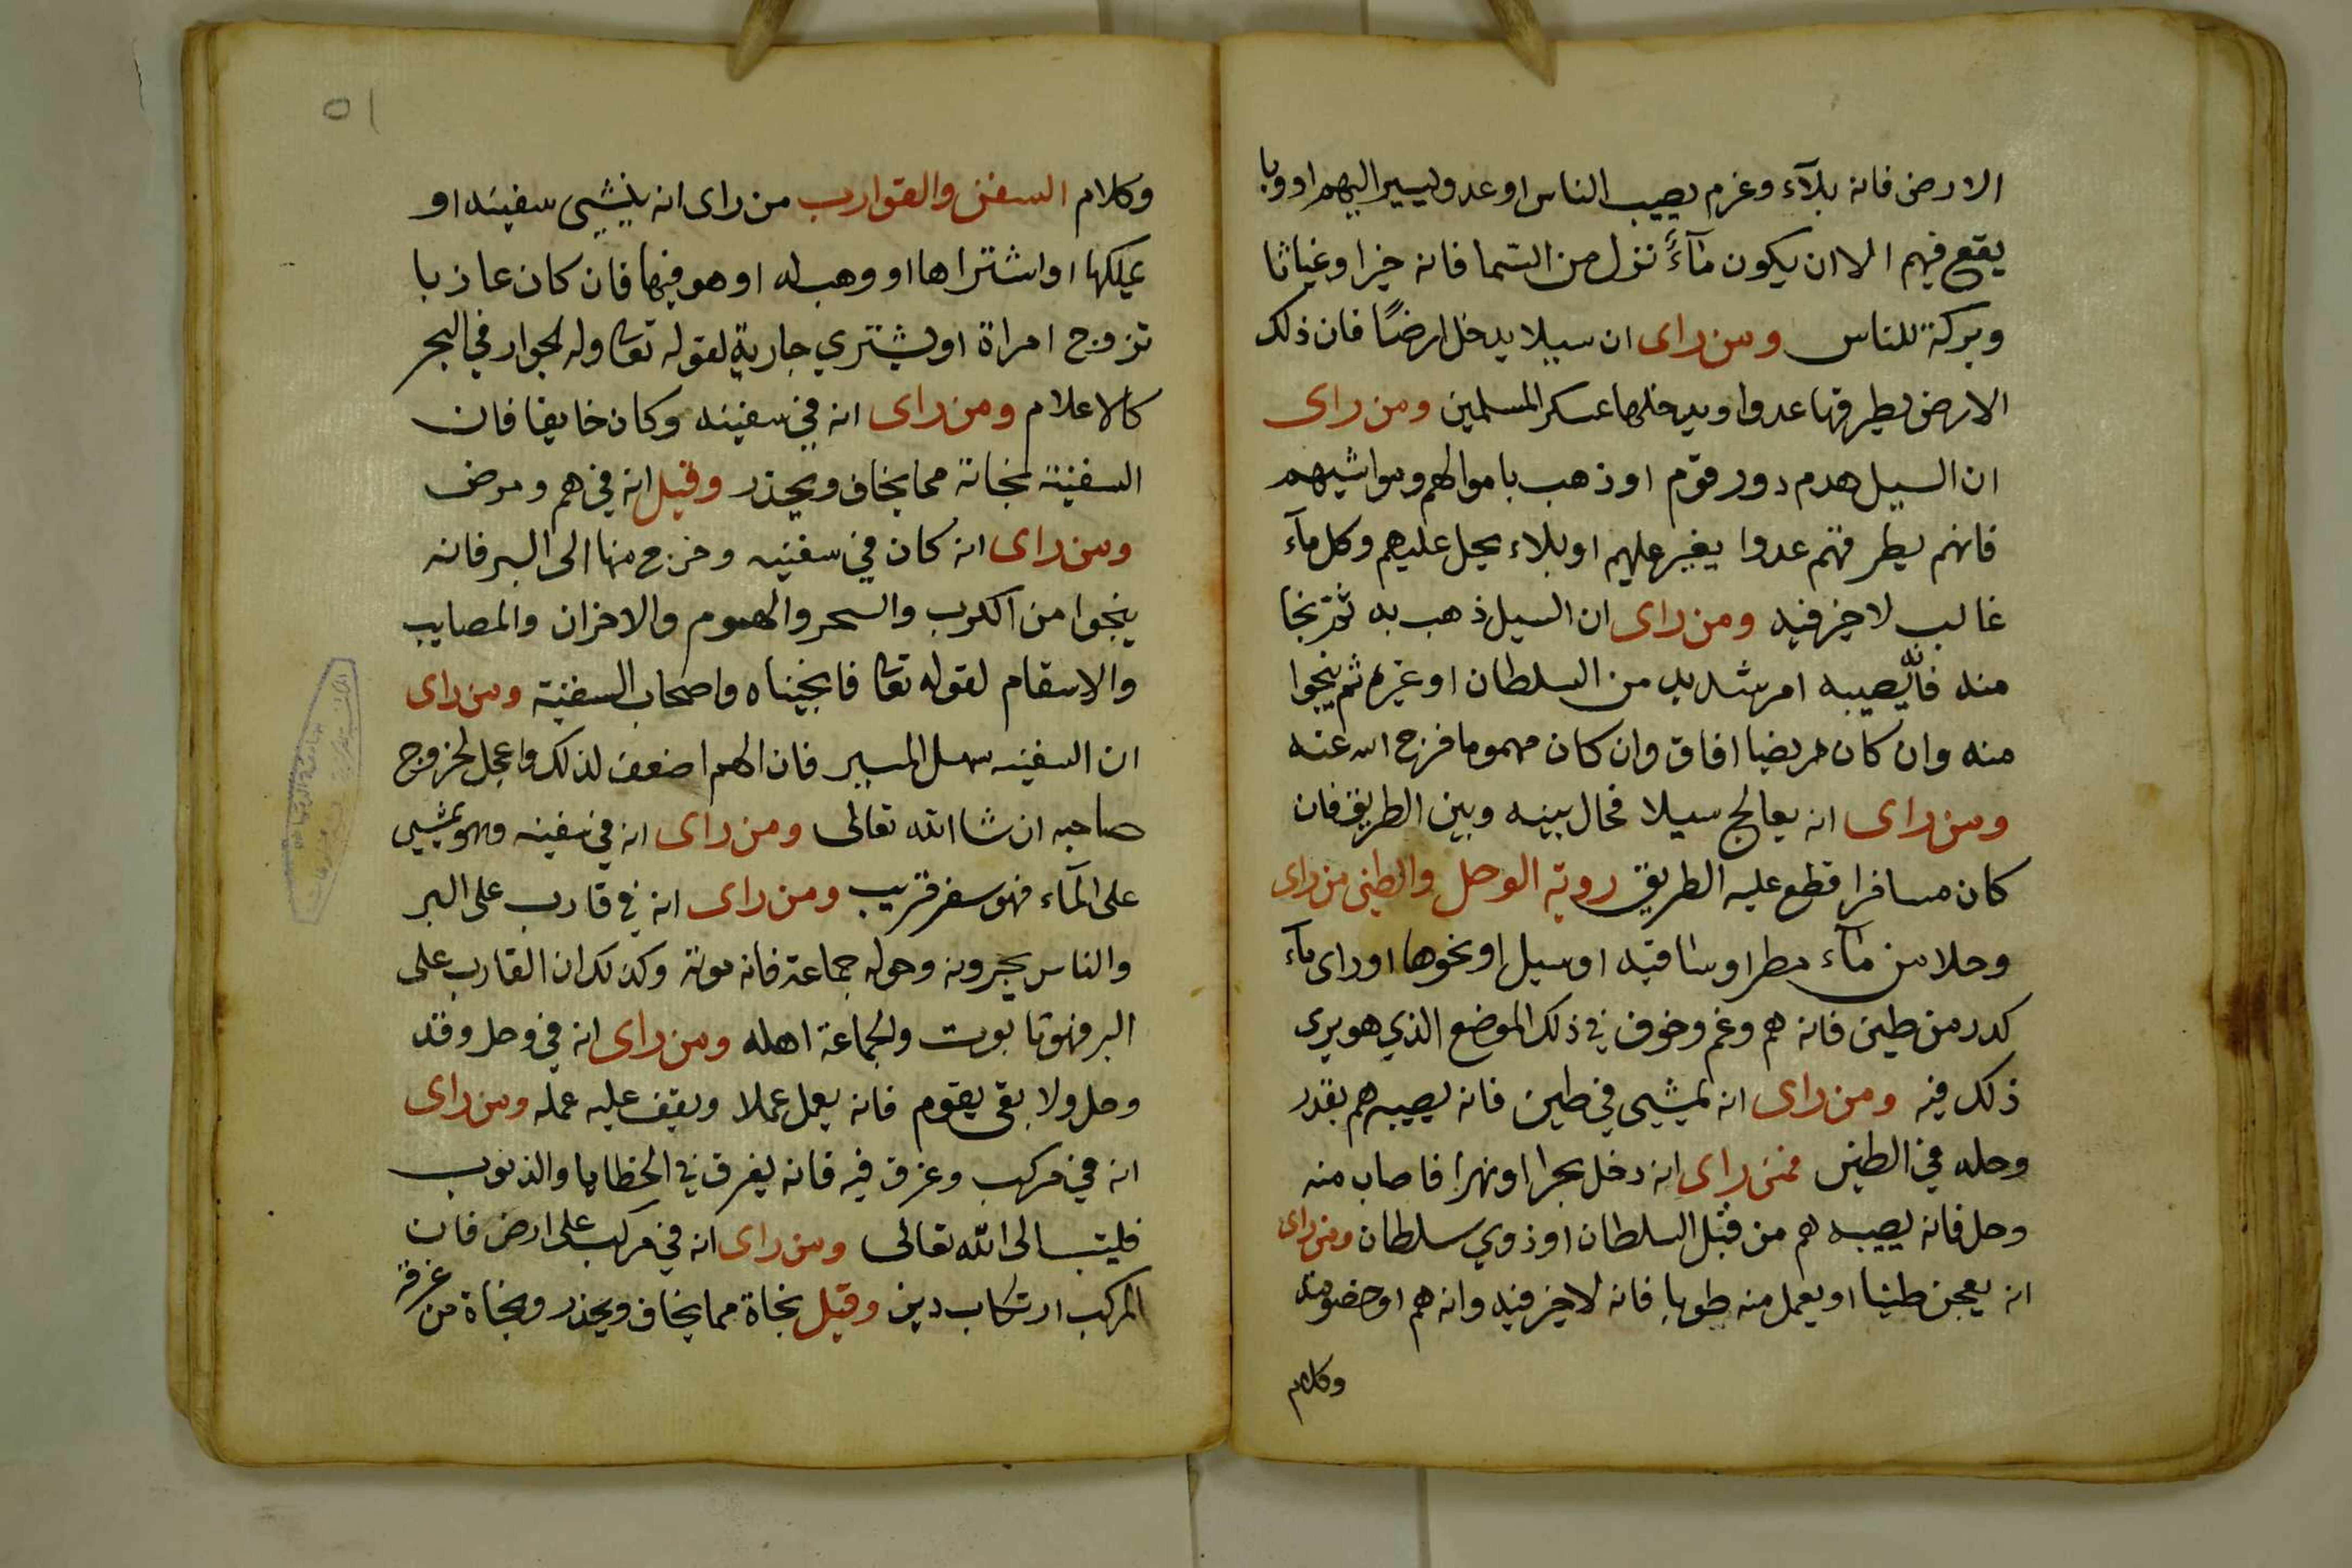 الارض فانه بلآء وغرم يصيب الناس او عدو يسير اليهم او وبا
يقع فيهم الا ان يكون مآءً نزل من السّما فانه خيرا وغياثا
وبركة للناس ومن راى ان سيلا يدخل ارضًا فان ذلك
الارض يطرقها عدوا ويدخلها عسكر المسلمين ومن راى
ان السيل هدم دور قوم او ذهب باموالهم ومواشيهم
فانهم يطرقهم عدوا يغير عليهم او بلاء يحل عليهم وكل مآء
غالب لا خير فيه ومن راى ان السيل ذهب به ثم نجا
منه فانه يصيبه امر شديد من السلطان او غيره ثم ينجوا
منه وان كان مريضا افاق وان كان مهموما فرج الله عنه
ومن راى انه يعالج سيلا فحال بينه وبين الطريق فان
كان مسافرا قطع عليه الطريق روية الوحل والطين من راى
وحلا من مآء مطر او ساقيه او سيل او نحوها او راى مآء
كدر من طين فانه هم وغم وخوف في ذلك الموضع الذي هو يرى
ذلك فيه ومن راى انه يمشي في طين فانه يصيبه هم بقدر
وحله في الطين فمن راى انه دخل بحرا او نهرا فاصاب منه
وحل فانه يصيبه هم من قبل السلطان او ذوي سلطان ومن راى
انه يعجن طينا او يعمل منه طوبا فانه لا خير فيه وانه هم او خصومه
وكلام
٥١
وكلام السفن والقوارب من راى انه ينشي سفينه او
يملكها او اشتراها او وهب له او هو فيها فان كان عازبا
تزوج امراة او يشتري جارية لقوله تعا وله الجوار في البحر
كالاعلام ومن راى انه في سفينه وكان خايفا فان
السفينة نجاته مما يخاف ويحذر وقيل انه في هم ومرض
ومن راى انه كان في سفينه وخرج منها الى البر فانه
ينجوا من الكرب والسحر والهموم والاحزان والمصايب
والاسقام لقوله تعا فانجيناه واصحاب السفينة ومن راى
ان السفينه سهل المسير فان الهم اضعف لذلك واعجل لخروج
صاحبه ان شا الله تعالى ومن راى انه في سفينه وهو يمشي
على المآء فهو سفر قريب ومن راى انه في قارب على البر
والناس يجرونه وحوله جماعة فانه موته وكذلك ان القارب على
البر فهو تابوت والجماعة اهله ومن راى انه في وحل وقد
وحل ولا بقى يقوم فانه يعمل عملا ويقف عليه عمله ومن راى
انه في مركب وغرق فيه فانه يغرق في الخطايا والذنوب
فليتب الى الله تعالى ومن راى انه في مركب على ارض فان
المركب ارتكاب دين وقيل نجاة مما يخاف ويحذر ونجاة من غرفة